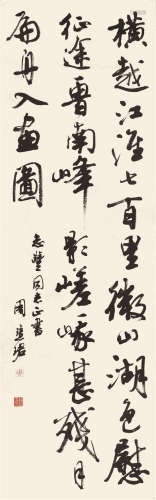 横越江淮七百里微山湖色慰
征途鲁南峰影嵯峨甚残月
扁舟入画图
志丰同志正书
周慧珺